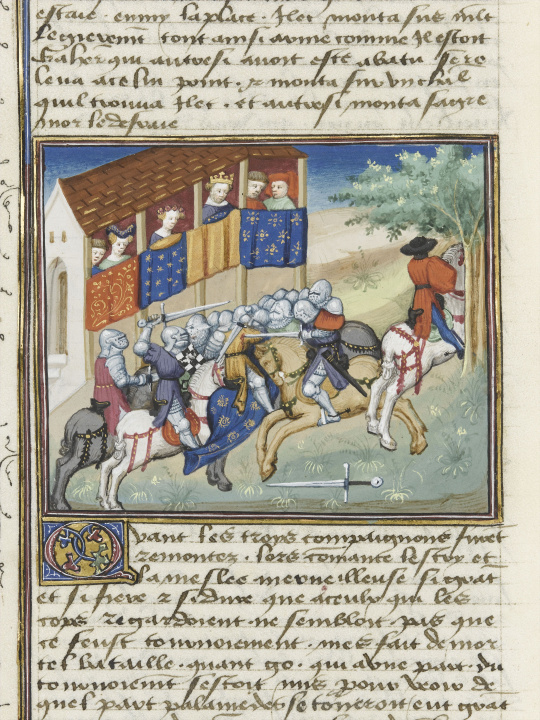 estaie · enmy la place · Ilec monta sus mlt
legierement tout ainsi arme comme il estoit
Gaherie qui autresi auoit este abatu se re
leua a celui point · & monta sur vn cheual
quil trouua Ilec · et autresi monta sagre
mor le desraie
Quant les troys compaignons furet
remontez · lors comance lestry et
la meslee merueilleuse si grat
et si fiere & si dure que a ceulx qui les
cops regardoient ne sembloit pas que
ce feust tournoiement · mes fait de mor
tel bataille · quant go · qui dune part du
tournoiemt sestoit mis pour veoir de
quel part palamedes se torneroit eut grat